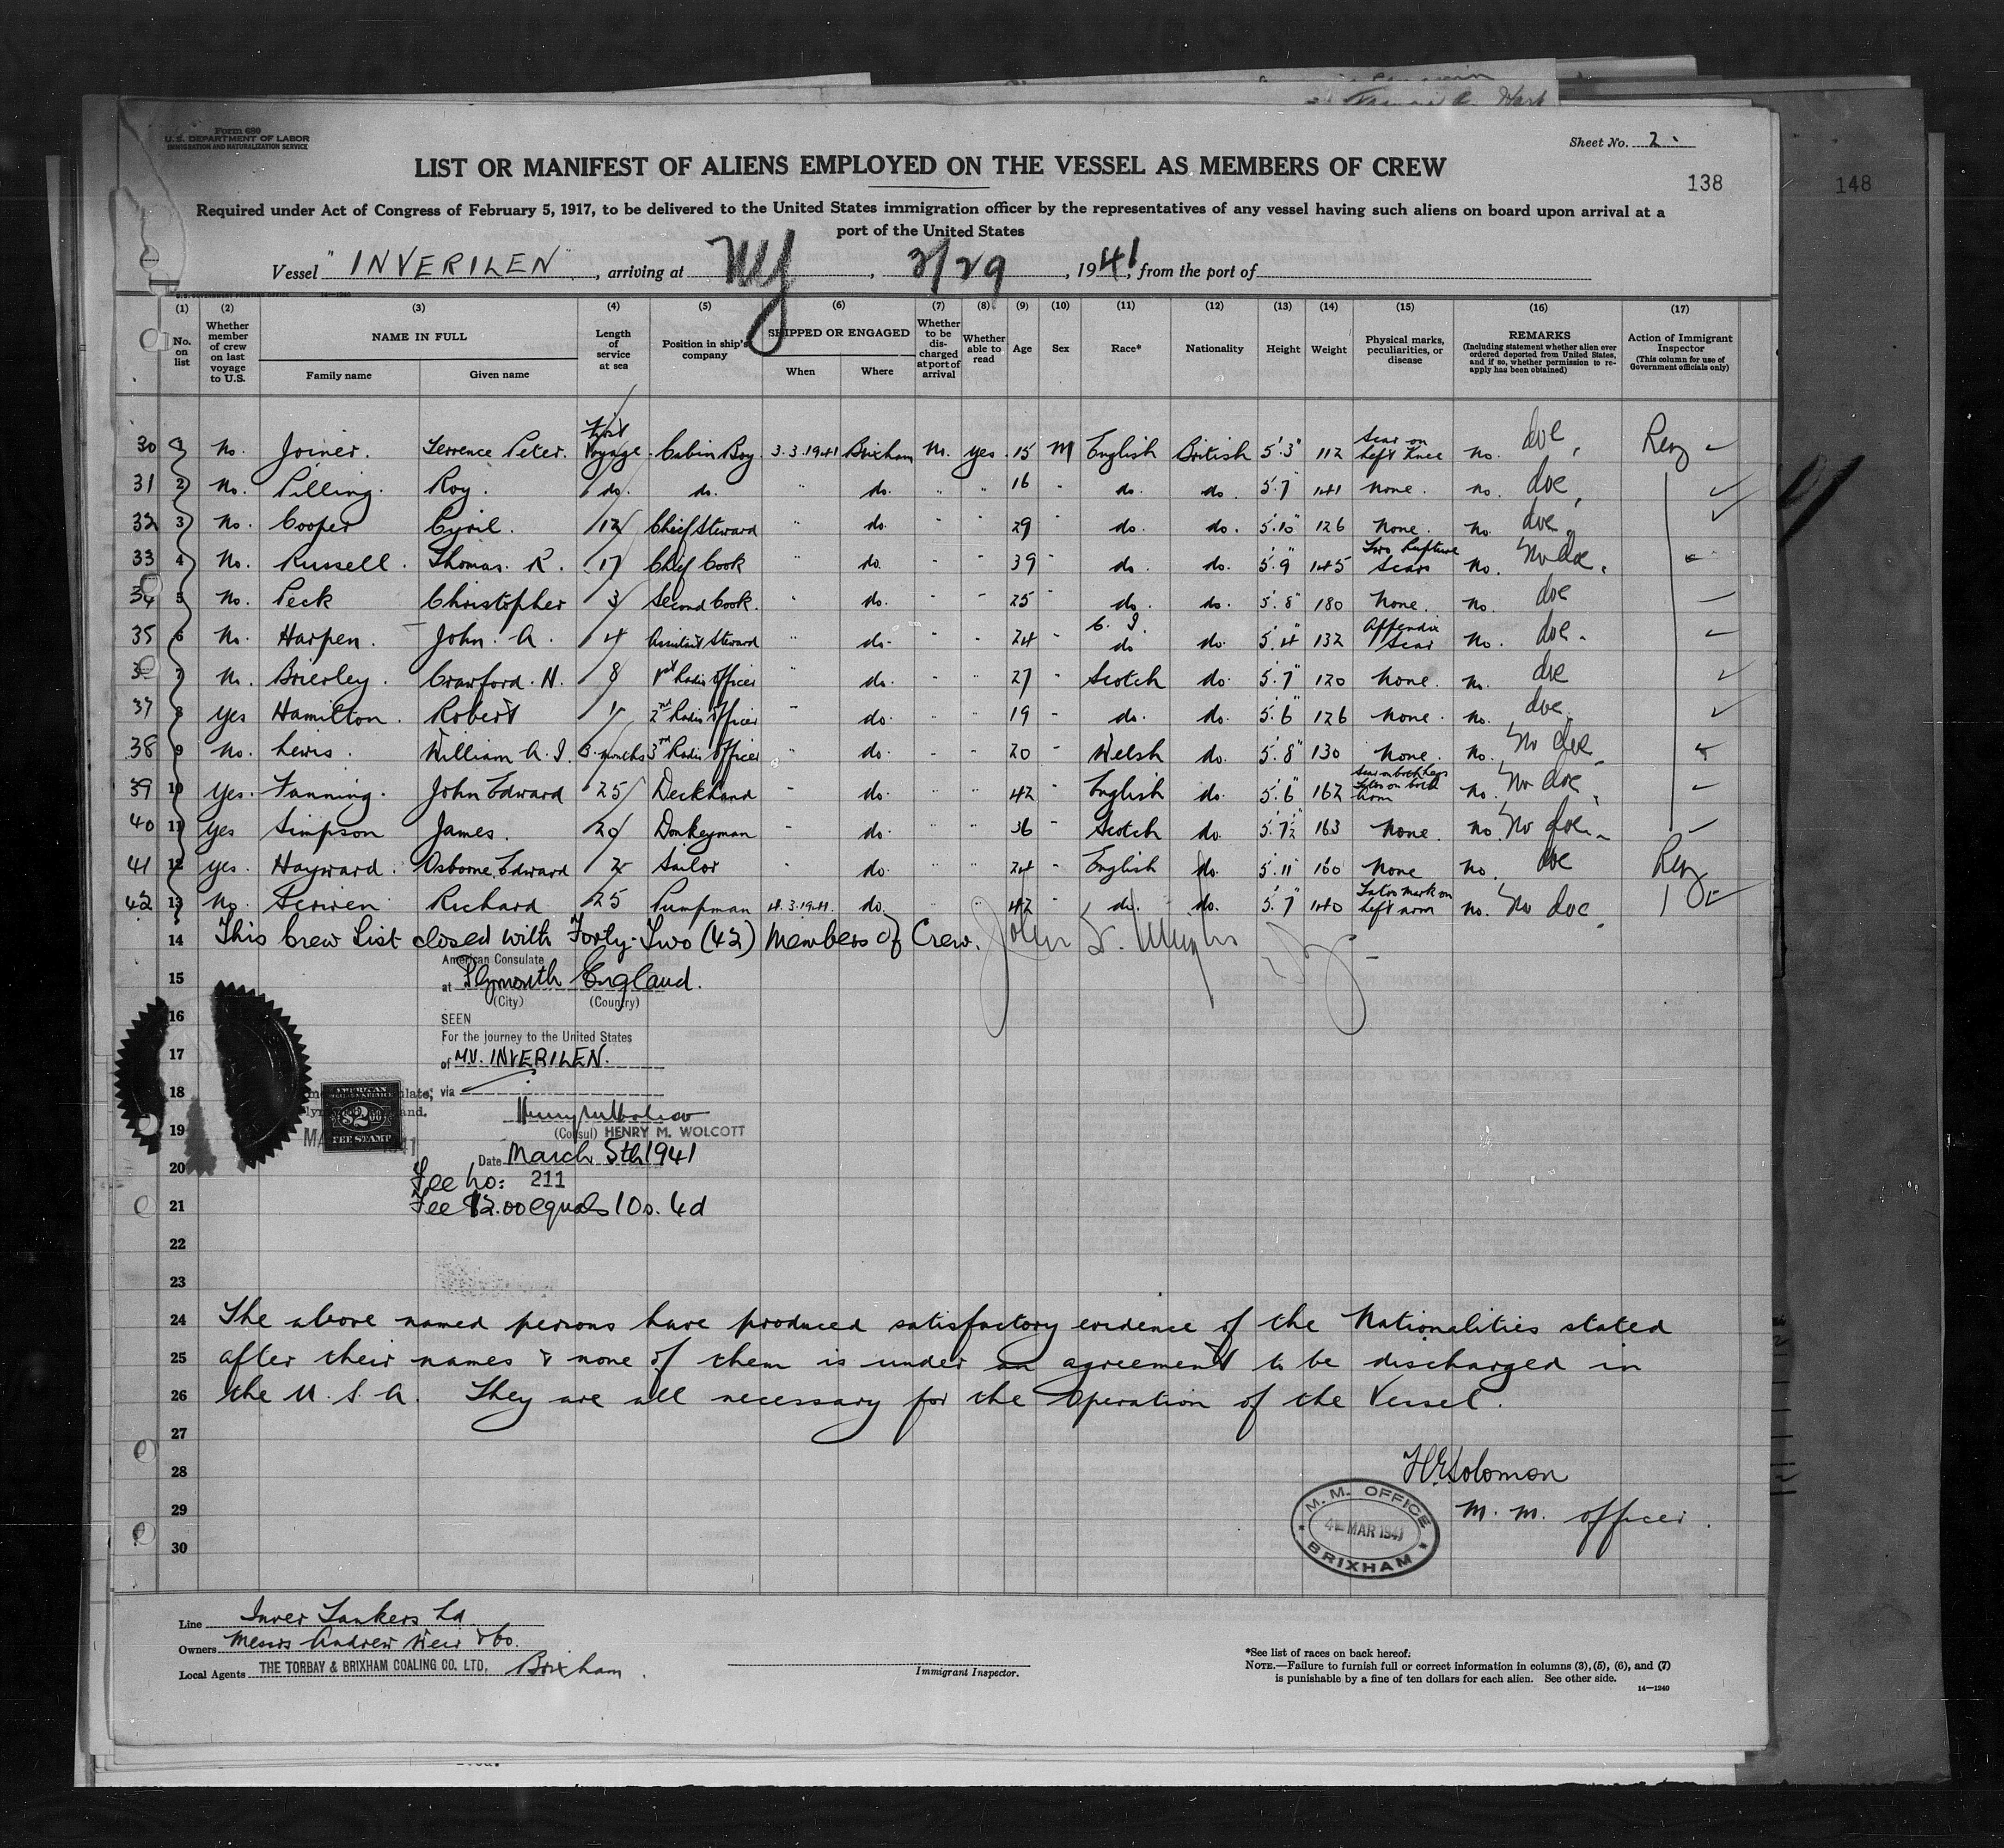 Form 680
U.S. DEPARTMENT OF LABOR
IMMIGRATION AND NATURALIZATION SERVICE
Sheet No. 2
LIST OR MANIFEST OF ALIENS EMPLOYED ON THE VESSEL AS MEMBERS OF CREW
138
148
Required under Act of Congress of February 5, 1917, to be delivered to the United States immigration officer by the representatives of any vessel having such aliens on board upon arrival at a
port of the United States
Vessel "INVERILEN", arriving at NY, 3/29, 1941, from the port of
U.S. GOVERNMENT PRINTING OFFICE 14-1240
(1) (2) (3) (4) (5) (6) (7) (8) (9) (10) (11) (12) (13) (14) (15) (16) (17)
No. on list
Whether member of crew on last voyage to U.S.
NAME IN FULL
Family name
Given name
Length of service at sea
Position in ship's company
SHIPPED OR ENGAGED
When
Where
Whether to be discharged at port of arrival
Whether able to read
Age
Sex
Race*
Nationality
Height
Weight
Physical marks, peculiarities, or disease
REMARKS
(Including statement whether alien ever ordered deported from United States, and if so, whether permission to reapply has been obtained)
Action of Immigrant Inspector
(This column for use of Government officials only)
30 No. Joiner. Terrence Peter. First Voyage. Cabin Boy 3.3.1941 Brixham No. yes. 15 M English British 5'3" 112 Scar on Left Knee No.
31 2 No. Pilling. Roy. do. do. " do. " " 16 - do. do. 5'7" 141 None. No.
32 3 No. Cooper Cyril. 12 Chief Steward " do. " " 29 - do. do. 5'10" 126 None. No.
33 4 No. Russell. Thomas. R. 17 Chief Cook do. - " 39 - do. do. 5'9" 145 Two Rupture Scars No.
34 5 No. Peck Christopher 3 Second Cook. " do. - " 25 " do. do. 5'8" 180 None. No.
35 6 No. Harpen. John. A. 4 Assistant Steward " do. " " 24 - do do. 5'4" 132 Appendix Scar No.
7 No. Brierley. Crawford. H. 8 1st Radio Officer " do. " " 27 - Scotch do. 5'7" 120 None. No.
37 8 yes Hamilton. Robert 1 2nd Radio Officer - do. " " 19 - do. do. 5'6" 126 None. No.
38 9 No. Lewis. William A. I. 3 months 3rd Radio Officer " do. - " 20 - Welsh do. 5'8" 130 None. No.
39 10 Yes. Fanning. John Edward 25 Deckhand - do. " " 42 - English do. 5'6" 162 No.
40 11 yes Simpson James. 20 Donkeyman - do. " " 36 - Scotch do. 163 None. No.
41 12 yes. Hayward. Osborne Edward 2 Sailor - do. " " 24 - English do. 5'11" 160 None No.
42 13 No. Scriven Richard 25 Pumpman 4.3.1941. do. " " 42 - do. do. 5'7" 140 Tatoo mark on Left arm No.
14 This Crew List closed with Forty-Two (42) Members of Crew.
American Consulate
15 at Plymouth England.
(City) (Country)
16 SEEN
For the journey to the United States
17 of M.V. INVERILEN.
18 via
AMERICAN $2.00 FEE STAMP
19 (Consul) HENRY M. WOLCOTT
Date March 5th 1941
20 Fee No: 211
21 Fee $2.00 equals 10s. 4d
22
23
24 The above named persons have produced satisfactory evidence of the Nationalities stated
25 after their names & none of them is under an agreement to be discharged in
26 the U.S.A. They are all necessary for the Operation of the Vessel.
27
28 H E Solomon
29 M.M. Officer.
30
M. M. OFFICE
4 MAR 1941
BRIXHAM
Line Inver Tankers Ld
Owners Messrs Andrew Weir & Co.
Local Agents THE TORBAY & BRIXHAM COALING CO. LTD, Brixham.
Immigrant Inspector.
*See list of races on back hereof.
NOTE.—Failure to furnish full or correct information in columns (3), (5), (6), and (7)
is punishable by a fine of ten dollars for each alien. See other side.
14-1240